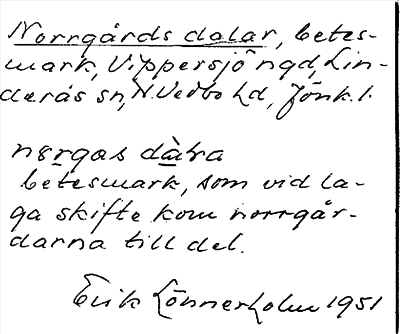 Norrgårds dalar, betes-
mark, Vippersjö ngd, Lin-
derås sn, N. Vedbo hd, Jönk. l.
betesmark, som vid la-
ga skifte kom norrgår-
darna till del.
Erik Lönnerholm 1951